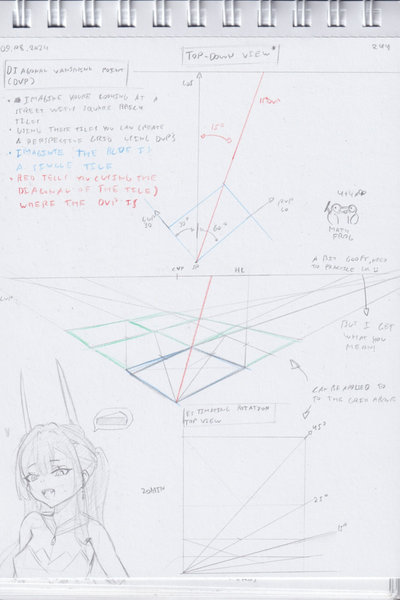 09.08.2024
TOP-DOWN VIEW*
DIAGONAL VANISHING POINT
(DVP)
• IMAGINE YOU'RE LOOKING AT A
STREET WITH SQUARE
TILES
• USING THESE TILES YOU CAN CREATE
A PERSPECTIVE GRID USING DVP'S
• IMAGINE THE BLUE IS
A SINGLE TILE
• RED TELLS YOU (USING THE
DIAGONAL OF THE TILE)
WHERE THE DVP IS
LOS
15°
30°
60°
LVP
30
RVP
60
CVP
SP
HL
4+4
MATH
FROG
A BIT GOOFY, NEED
TO PRACTICE
LVP
BUT I GET
WHAT YOU
MEAN
CAN BE APPLIED TO
TO THE GRID ABOVE
ESTIMATING ROTATION
TOP VIEW
45°
25°
15°